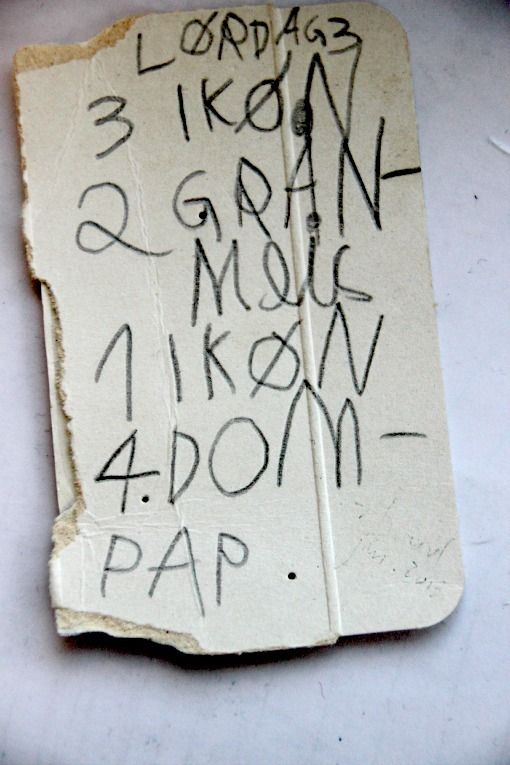 LØRDAG3
3 IKØN
2 GRAN-
MEIS
1 IKØN
4. DOM-
PAP.